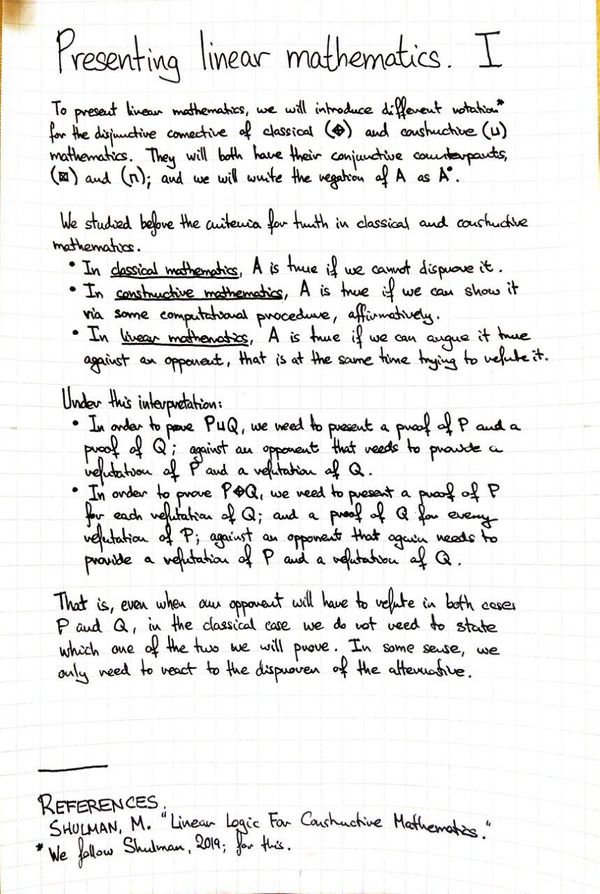 Presenting linear mathematics. I
To present linear mathematics, we will introduce different notation*
for the disjunctive connective of classical (⊕) and constructive (⊔)
mathematics. They will both have their conjunctive counterparts,
(⊠) and (⊓); and we will write the negation of A as A°.
We studied before the criteria for truth in classical and constructive
mathematics.
• In classical mathematics, A is true if we cannot disprove it.
• In constructive mathematics, A is true if we can show it
via some computational procedure, affirmatively.
• In linear mathematics, A is true if we can argue it true
against an opponent, that is at the same time trying to refute it.
Under this interpretation:
• In order to prove P⊔Q, we need to present a proof of P and a
proof of Q; against an opponent that needs to provide a
refutation of P and a refutation of Q.
• In order to prove P⊕Q, we need to present a proof of P
for each refutation of Q; and a proof of Q for every
refutation of P; against an opponent that again needs to
provide a refutation of P and a refutation of Q.
That is, even when our opponent will have to refute in both cases
P and Q, in the classical case we do not need to state
which one of the two we will prove. In some sense, we
only need to react to the disproven of the alternative.
REFERENCES.
SHULMAN, M. "Linear Logic For Constructive Mathematics."
* We follow Shulman, 2019; for this.